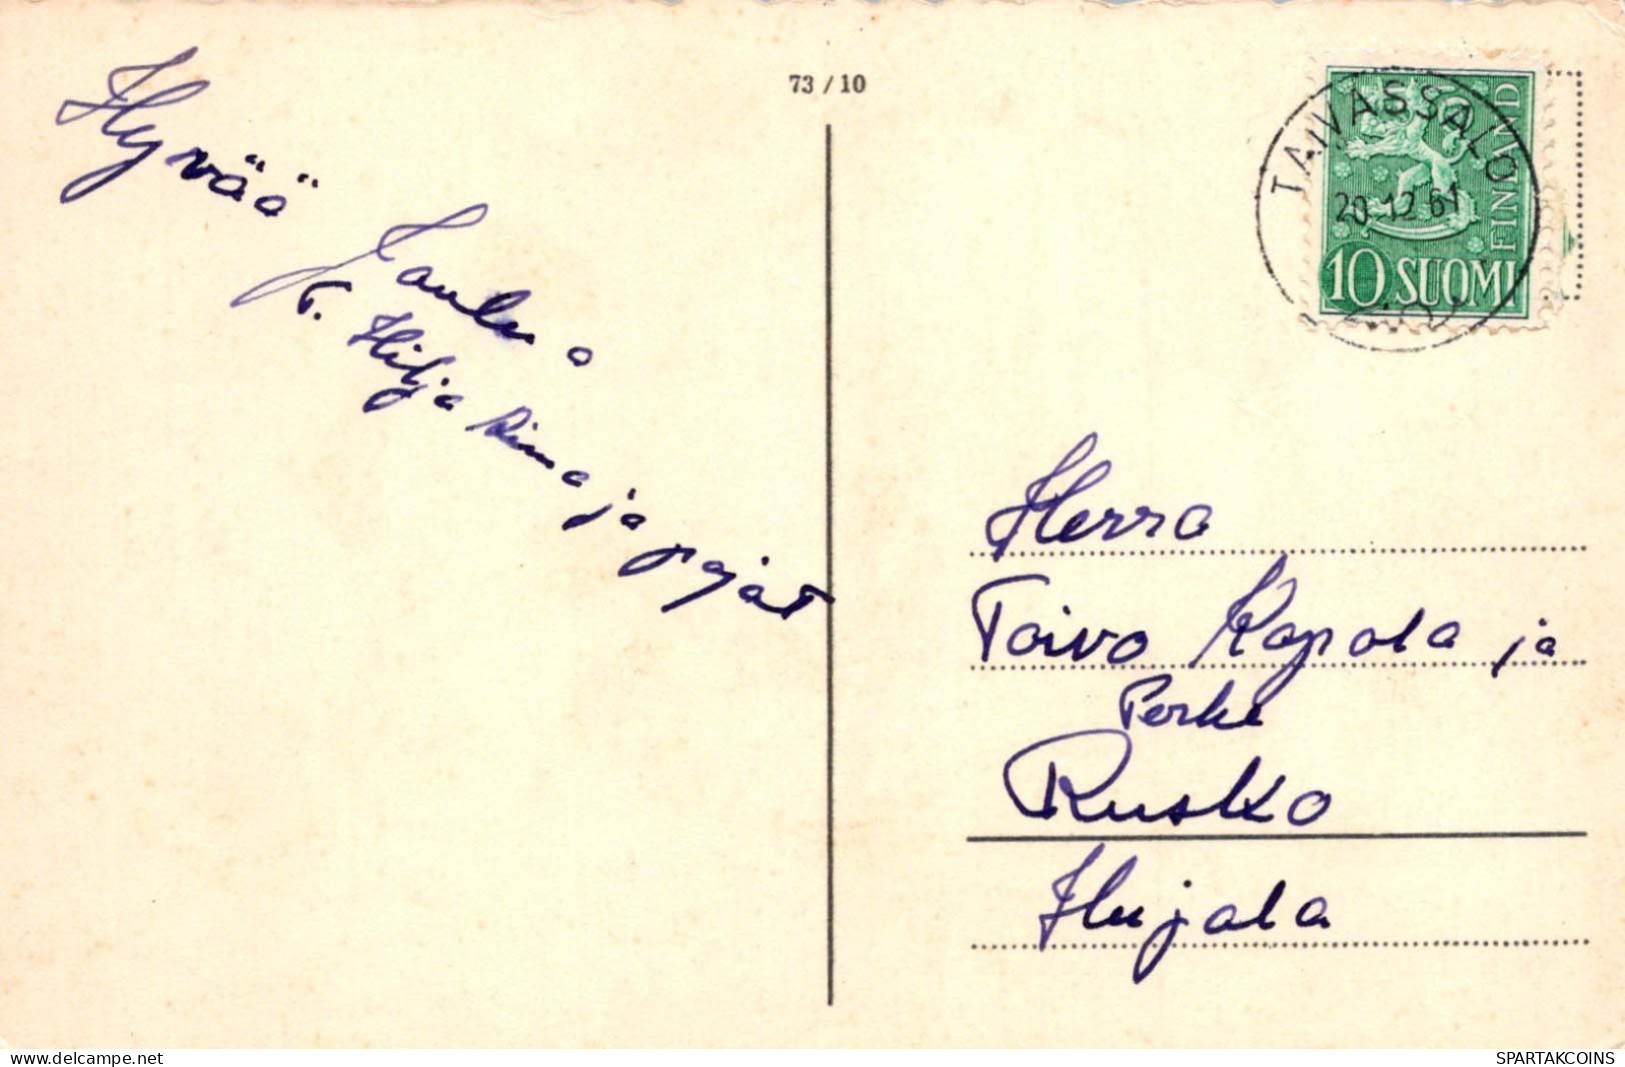 73 / 10
Hyvää
Joulua
T. Hilja Rima ja pojat
TAIVASSALO
20.12.61
FINLAND
10 SUOMI
Herra
Toivo Kapola ja
Perhe
Rusko
Hujala
delcampe.net
SPARTAKCOINS